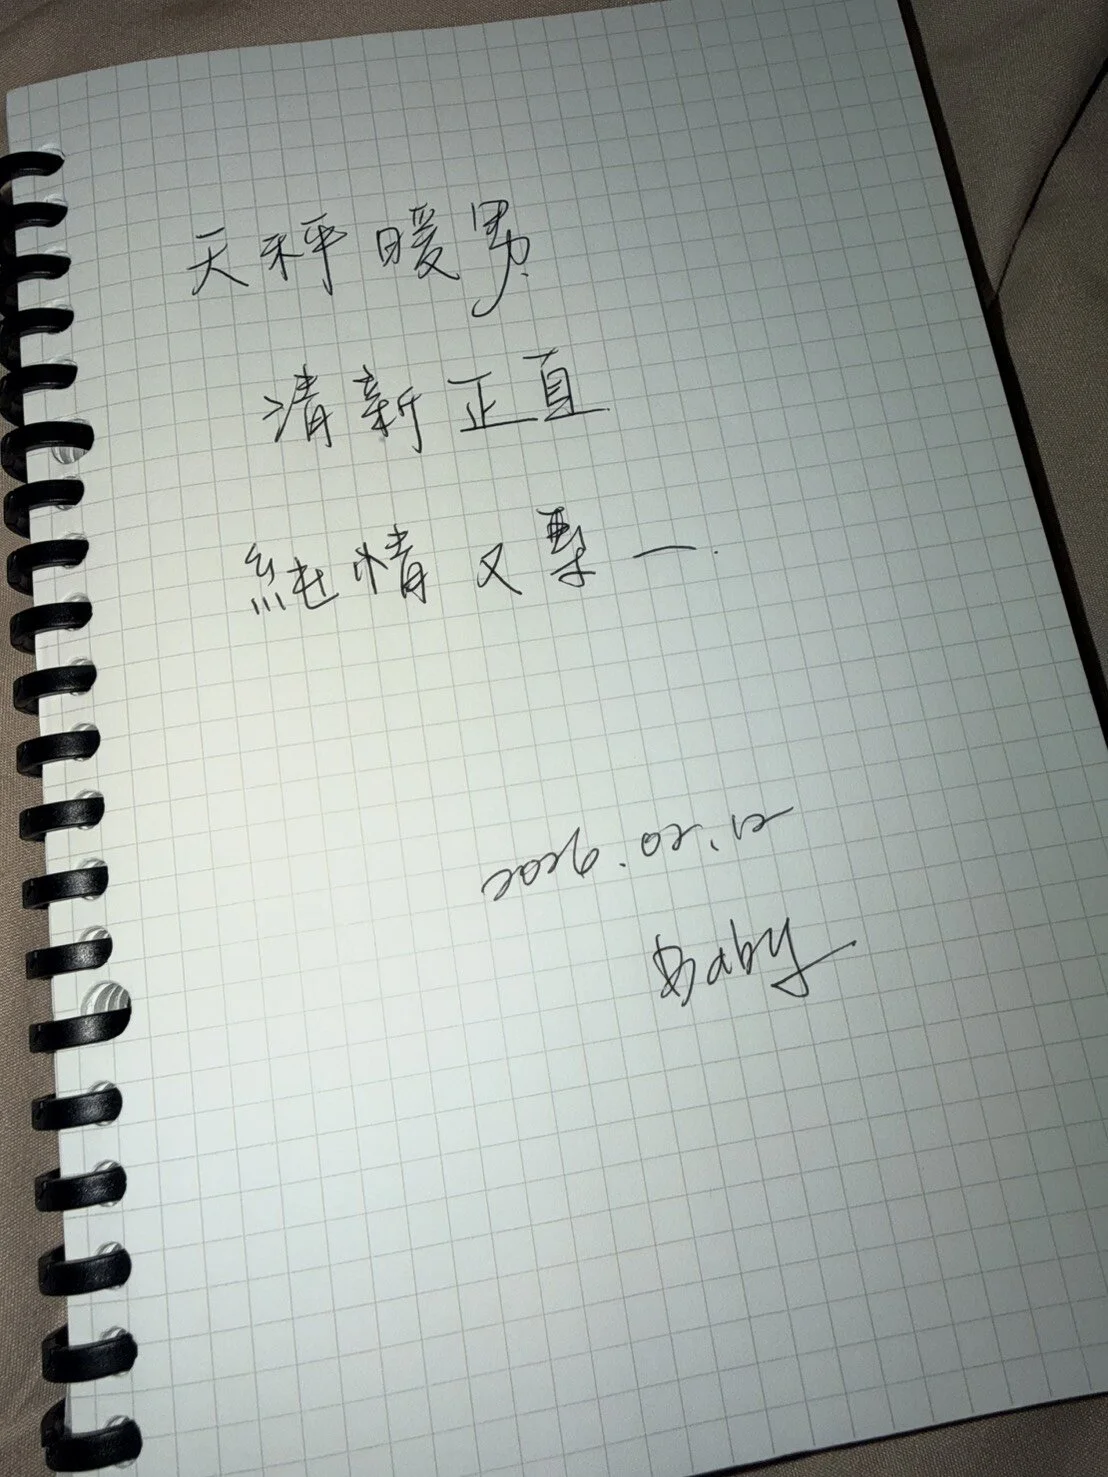 天秤暖男
清新正直
純情又專一.
Baby